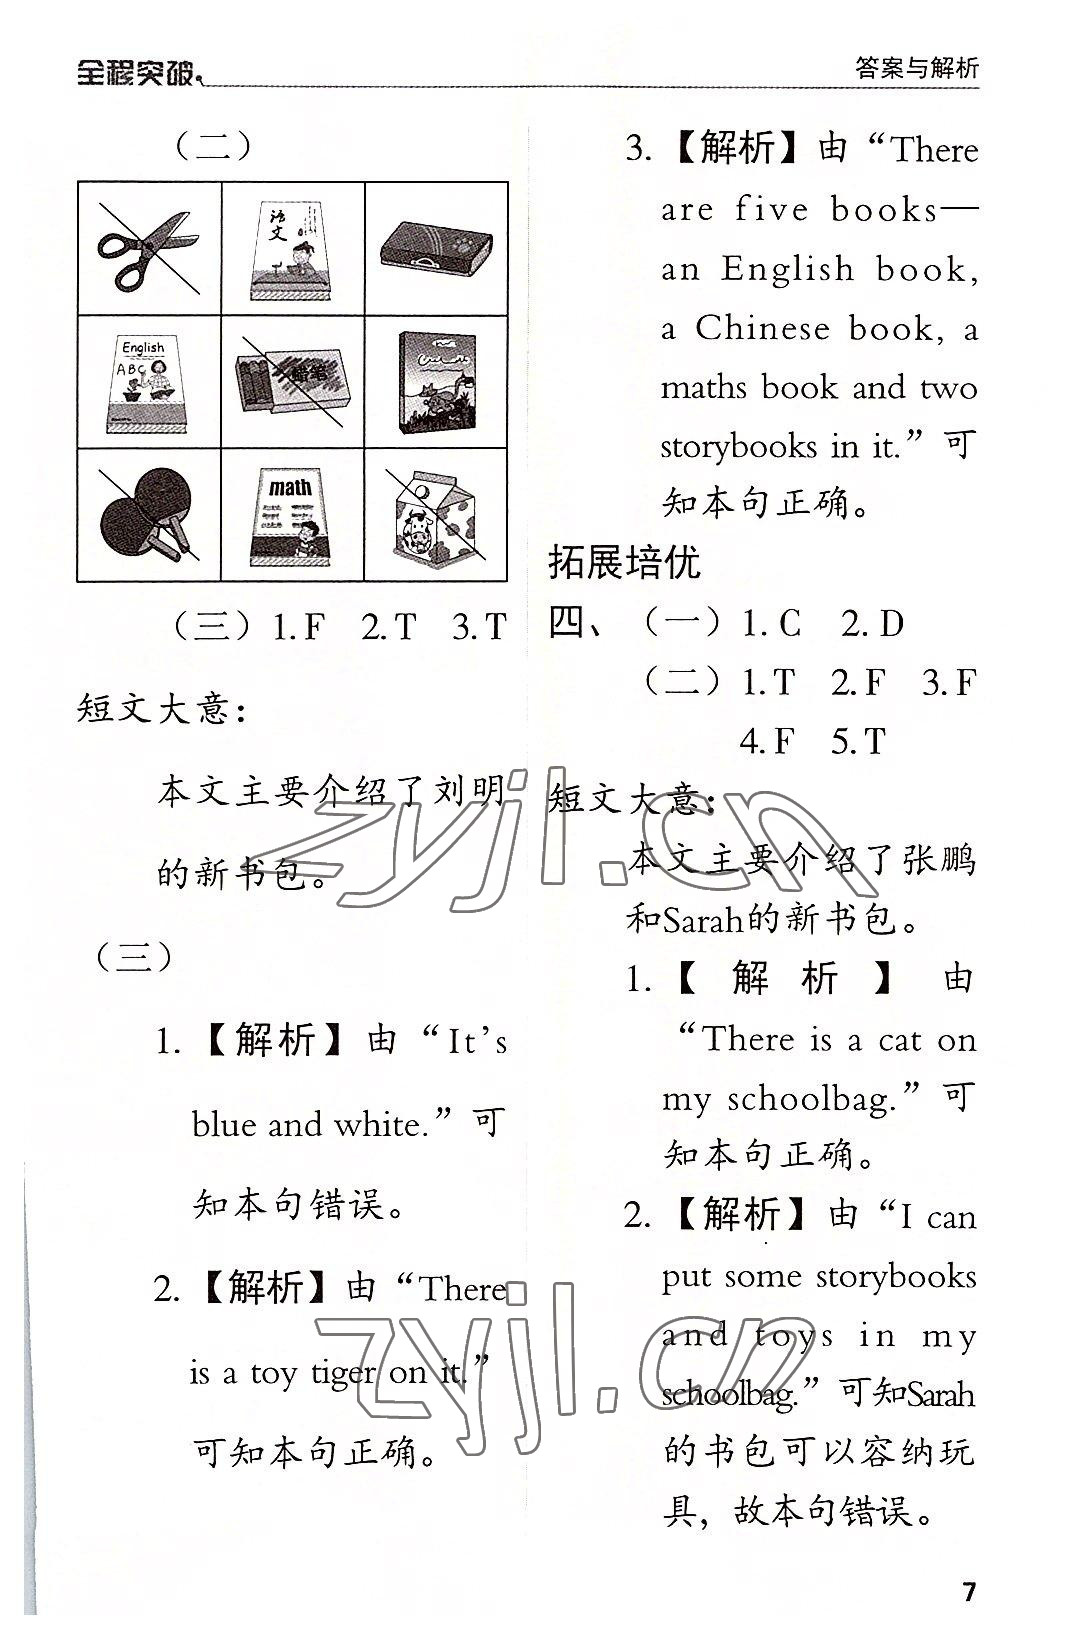 全程突破
答案与解析
（二）
语文
English
ABC
蜡笔
math
（三）1.F 2.T 3.T
短文大意：
本文主要介绍了刘明
的新书包。
（三）
1.【解析】由“It’s
blue and white.”可
知本句错误。
2.【解析】由“There
is a toy tiger on it.”
可知本句正确。
3.【解析】由“There
are five books—
an English book,
a Chinese book, a
maths book and two
storybooks in it.”可
知本句正确。
拓展培优
四、（一）1.C 2.D
（二）1.T 2.F 3.F
4.F 5.T
短文大意：
本文主要介绍了张鹏
和Sarah的新书包。
1.【解析】由
“There is a cat on
my schoolbag.”可
知本句正确。
2.【解析】由“I can
put some storybooks
and toys in my
schoolbag.”可知Sarah
的书包可以容纳玩
具，故本句错误。
zyjl.cn
zyjl.cn
7